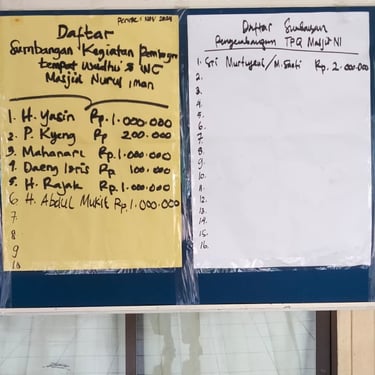 Periode 1 Nov 2024
Daftar
Sumbangan Kegiatan Pembangn
tempat Wudhu & WC
Masjid Nurul iman
1. H. Yasin Rp. 1.000.000
2. P. Kyeng Rp 200.000
3. Mahanari Rp. 1.000.000
4. Daeng Isris Rp 100.000
5. H. Rajak Rp. 1.000.000
6 H. Abdul Mukit Rp. 1.000.000
7
8
9
10
Daftar Sumbangan
Pengembangan TPQ Masjid NI
1. Sri Murtyasul / M. Sasti Rp. 2.000.000
2.
3.
4.
5.
6.
7.
8.
9.
10.
11.
12.
13.
14.
15.
16.